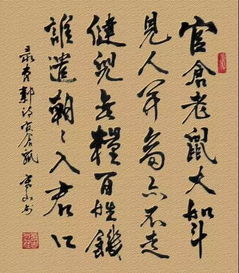 官倉老鼠大如斗
見人開倉亦不走
健兒無糧百姓饑
誰遣朝〻入君口
录曹鄴诗官倉鼠 山书